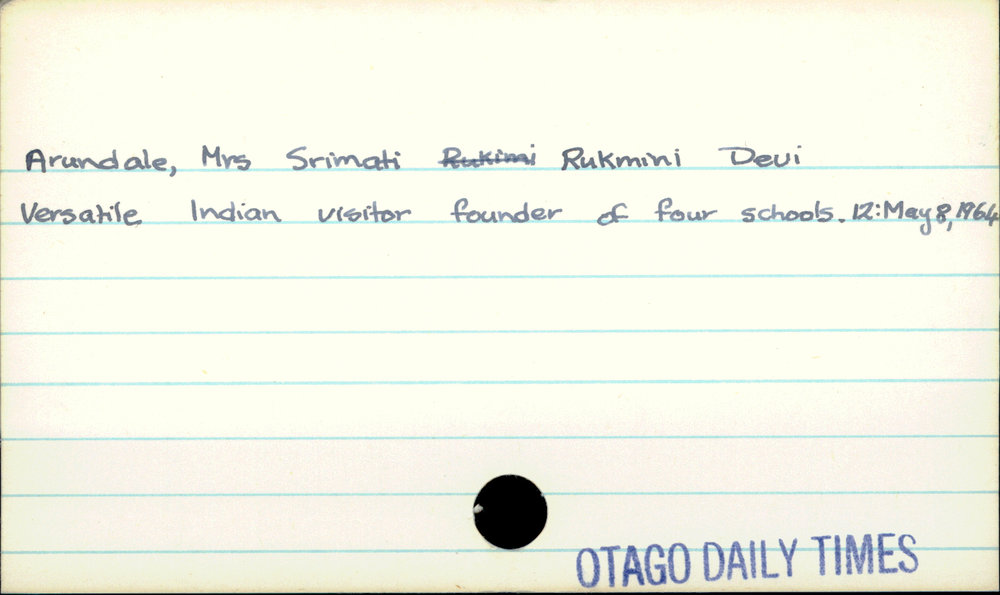 Arundale, Mrs Srimati Rukimi Rukmini Devi
Versatile Indian visitor founder of four schools. 12:May 8, 1964
OTAGO DAILY TIMES